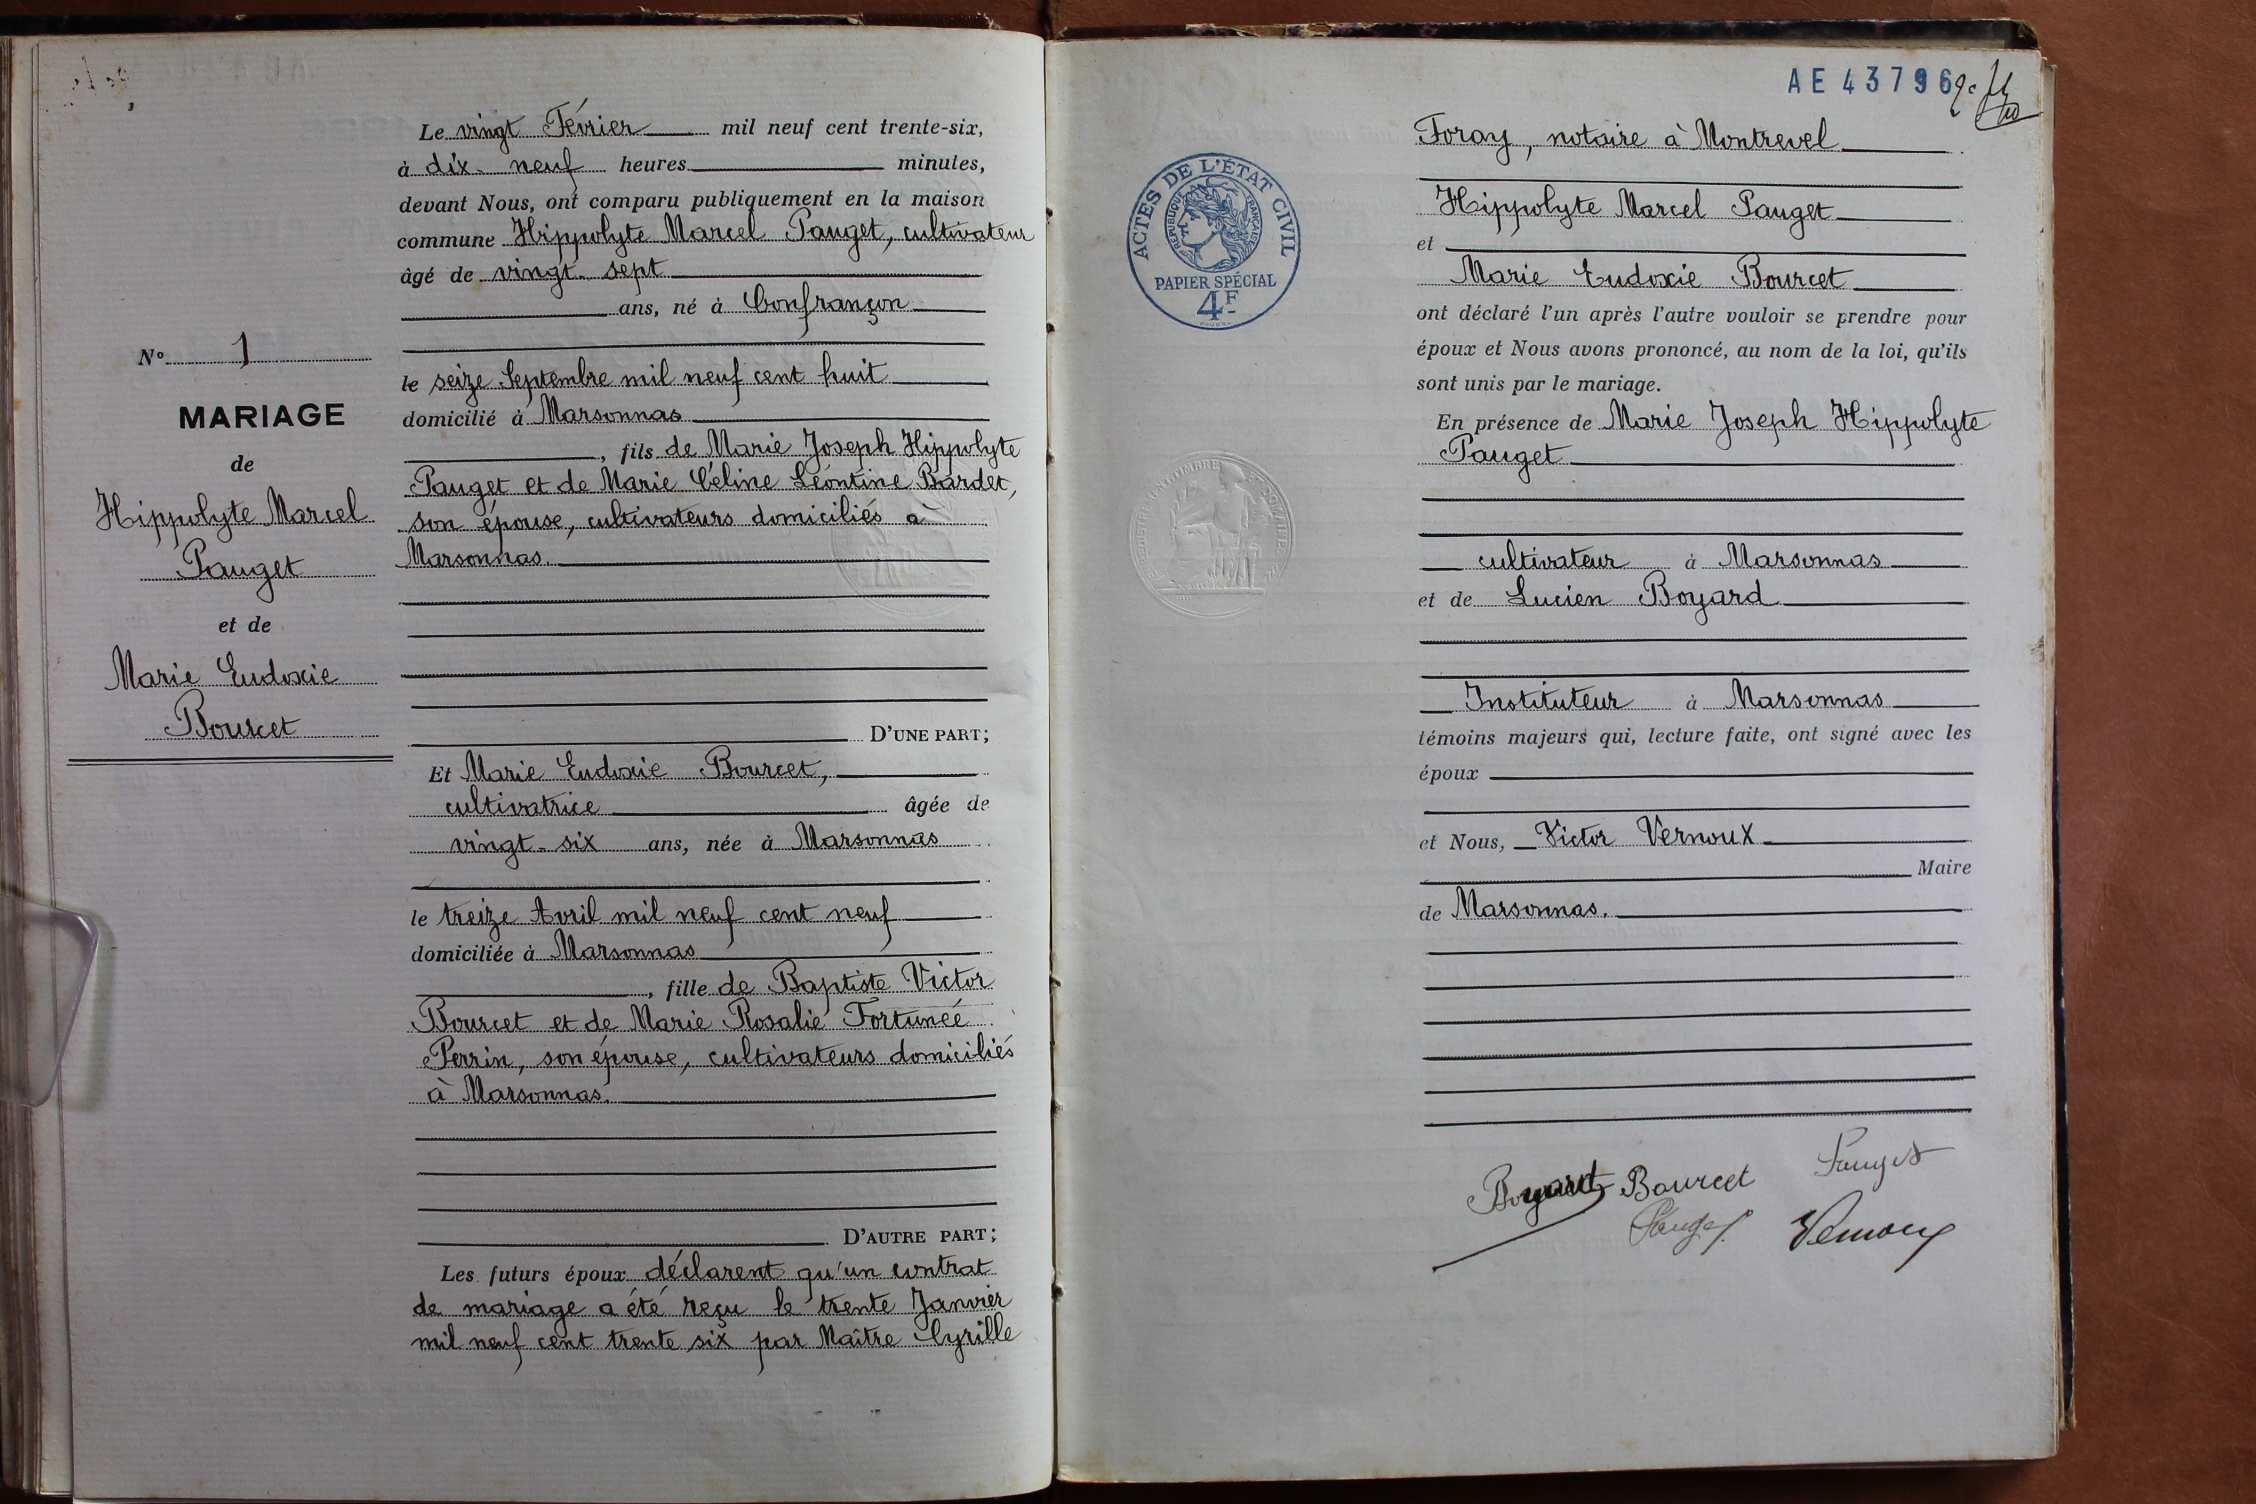 N° 1
MARIAGE
de
Hippolyte Marcel
Pauget
et de
Marie Eudoxie
Bourcet
Le vingt Février mil neuf cent trente-six,
à dix-neuf heures minutes,
devant Nous, ont comparu publiquement en la maison
commune Hippolyte Marcel Pauget, cultivateur
âgé de vingt-sept
ans, né à Confrançon
le seize Septembre mil neuf cent huit
domicilié à Marsonnas
, fils de Marie Joseph Hippolyte
Pauget et de Marie Céline Léontine Bardet,
son épouse, cultivateurs domiciliés à
Marsonnas.
D'UNE PART;
Et Marie Eudoxie Bourcet,
cultivatrice âgée de
vingt-six ans, née à Marsonnas
le treize Avril mil neuf cent neuf
domiciliée à Marsonnas
, fille de Baptiste Victor
Bourcet et de Marie Rosalie Fortunée
Perrin, son épouse, cultivateurs domiciliés
à Marsonnas.
D'AUTRE PART;
Les futurs époux déclarent qu'un contrat
de mariage a été reçu le trente Janvier
mil neuf cent trente six par Maître Cyrille
AE 43796
ACTES DE L'ÉTAT CIVIL
RÉPUBLIQUE FRANÇAISE
PAPIER SPÉCIAL
4F
Foray, notaire à Montrevel
Hippolyte Marcel Pauget
et
Marie Eudoxie Bourcet
ont déclaré l'un après l'autre vouloir se prendre pour
époux et Nous avons prononcé, au nom de la loi, qu'ils
sont unis par le mariage.
En présence de Marie Joseph Hippolyte
Pauget
cultivateur à Marsonnas
et de Lucien Boyard
Instituteur à Marsonnas
témoins majeurs qui, lecture faite, ont signé avec les
époux
et Nous, Victor Vernoux
Maire
de Marsonnas.
Boyard Bourcet Pauget
Pauget Vernoux